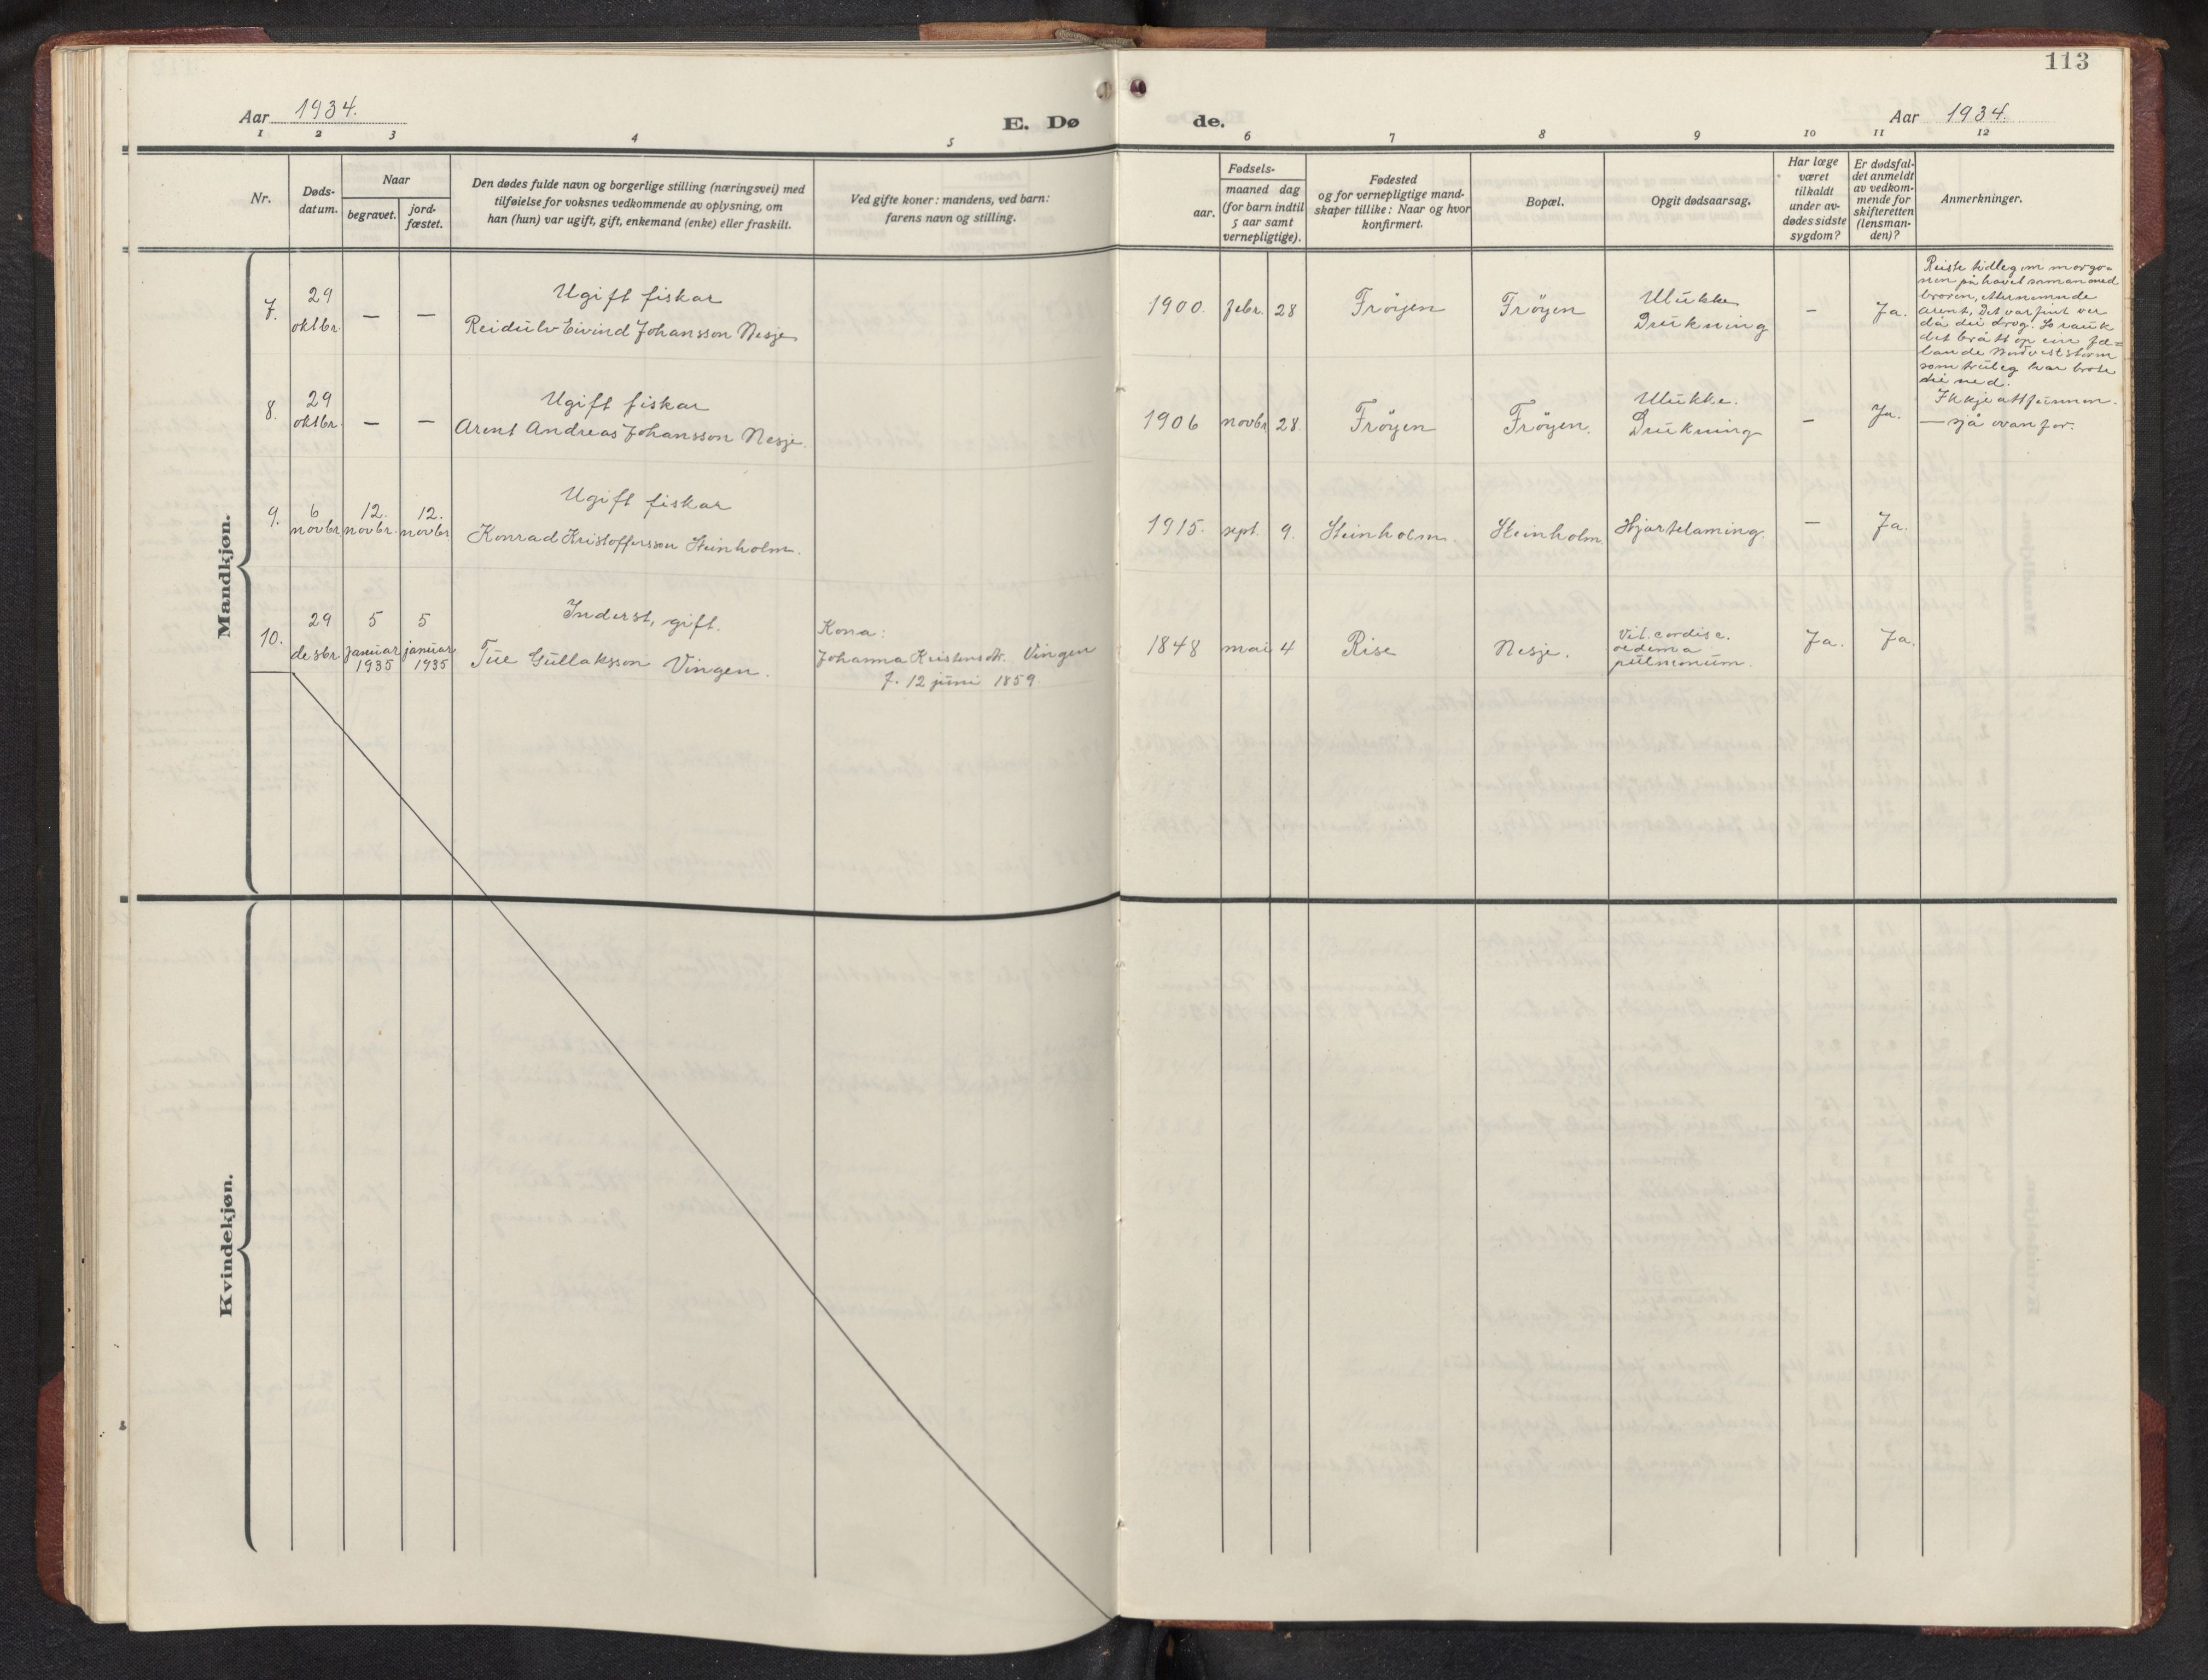 113
Aar 1934.
E. Dø
de.
Aar 1934.
1 2 3 4 5 6 7 8 9 10 11 12
Nr.
Døds-
datum.
Naar
begravet.
jord-
fæstet.
Den dødes fulde navn og borgerlige stilling (næringsvei) med
tilføielse for voksnes vedkommende av oplysning, om
han (hun) var ugift, gift, enkemand (enke) eller fraskilt.
Ved gifte koner: mandens, ved barn:
farens navn og stilling.
Fødsels-
aar.
maaned dag
(for barn indtil
5 aar samt
vernepligtige).
Fødested
og for vernepligtige mand-
skaper tillike: Naar og hvor
konfirmert.
Bopæl.
Opgit dødsaarsag.
Har læge
været
tilkaldt
under av-
dødes sidste
sygdom?
Er dødsfal-
det anmeldt
av vedkom-
mende for
skifteretten
(lensman-
den)?
Anmerkninger.
Mandkjøn.
7.
29
oktbr.
—
—
Ugift fiskar
Reidulv Eivind Johansson Nesje
1900.
febr.
28
Frøyen
Frøyen
Ulukke
Drukning
—
Ja.
Reiste tidleg um morgo-
nen på havet saman med
broren, etternemnde
Arent. Det var fint ver
då dei drog. So rauk
det brått op ein
Nordveststorm
som truleg har brote
dei ned.
Ikkje attfunnen.
8.
29
oktbr.
—
—
Ugift fiskar
Arent Andreas Johansson Nesje.
1906
novbr
28.
Frøyen
Frøyen.
Ulukke.
Drukning
—
Ja.
— sjå ovanfor.
9.
6
novbr.
12.
novbr.
12.
novbr.
Ugift fiskar
Konrad Kristoffersson Steinholm.
1915.
sept.
9.
Steinholm
Steinholm
Hjartelaming.
—
Ja.
10.
29
desbr.
5
januar
1935
5
januar
1935
Inderst, gift.
Tue Gullaksson Vingen.
Kona:
Johanna Kristensdtr. Vingen
f. 12 juni 1859.
1848
mai
4
Rise
Nesje.
Vit. cordisc.
oedema
pulmonum.
Ja.
Ja.
Kvindekjøn.